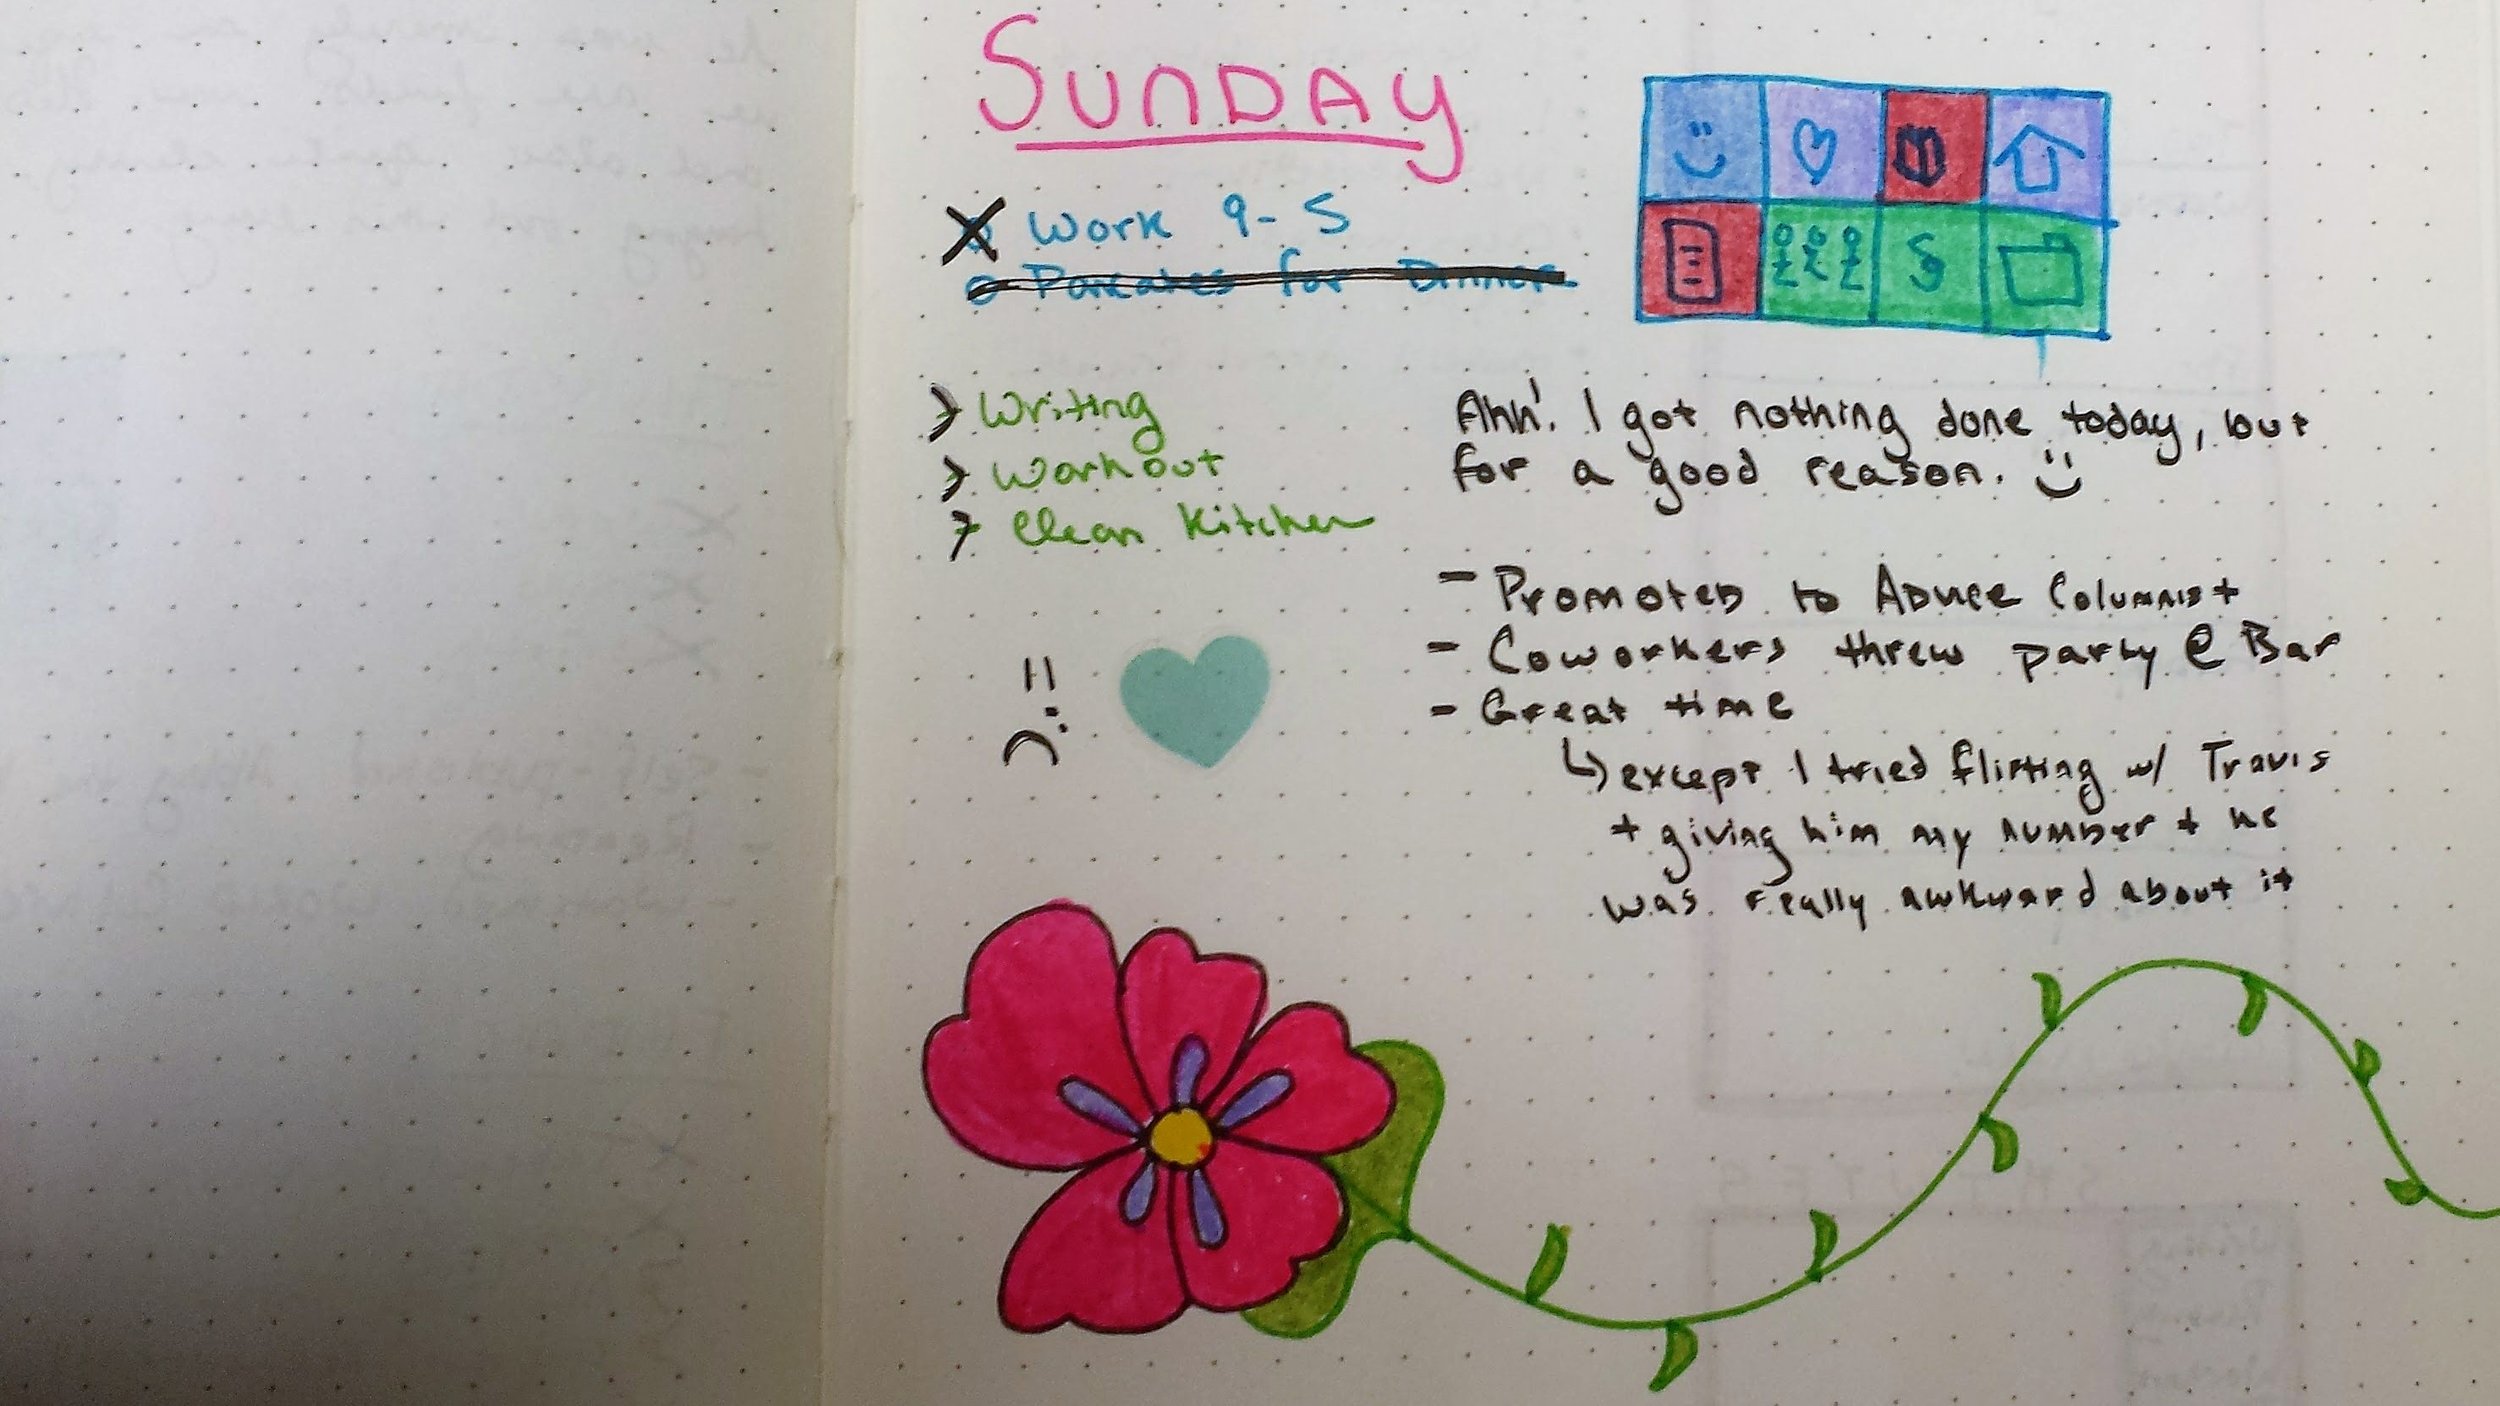 SUNDAY
Work 9-5
Pancakes for Dinner
Writing
Workout
Clean Kitchen
Ahh! I got nothing done today, but
for a good reason.
- Promoted to Advice Columnist
- Coworkers threw party @ Bar
- Great time
↳ except I tried flirting w/ Travis
+ giving him my number + he
was really awkward about it